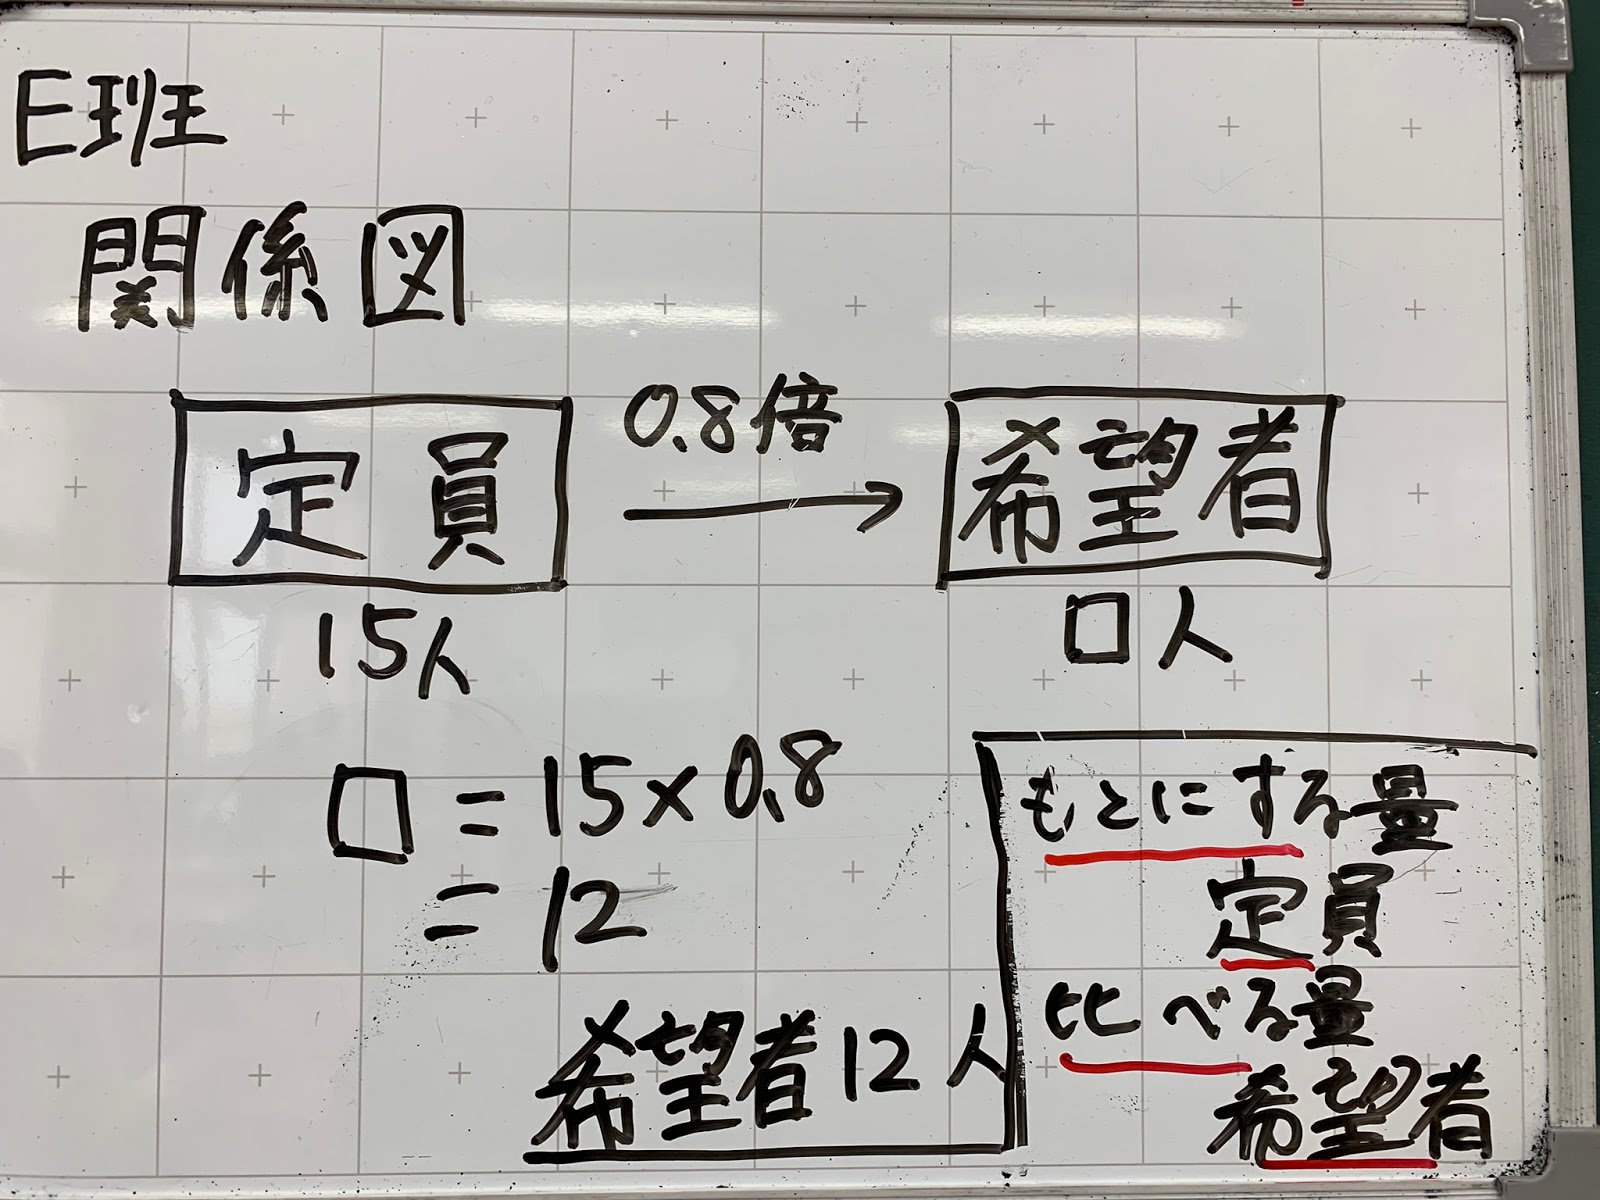 E班
関係図
定員 0.8倍 → 希望者
15人 □人
□=15×0.8
=12
希望者12人
もとにする量
定員
比べる量
希望者